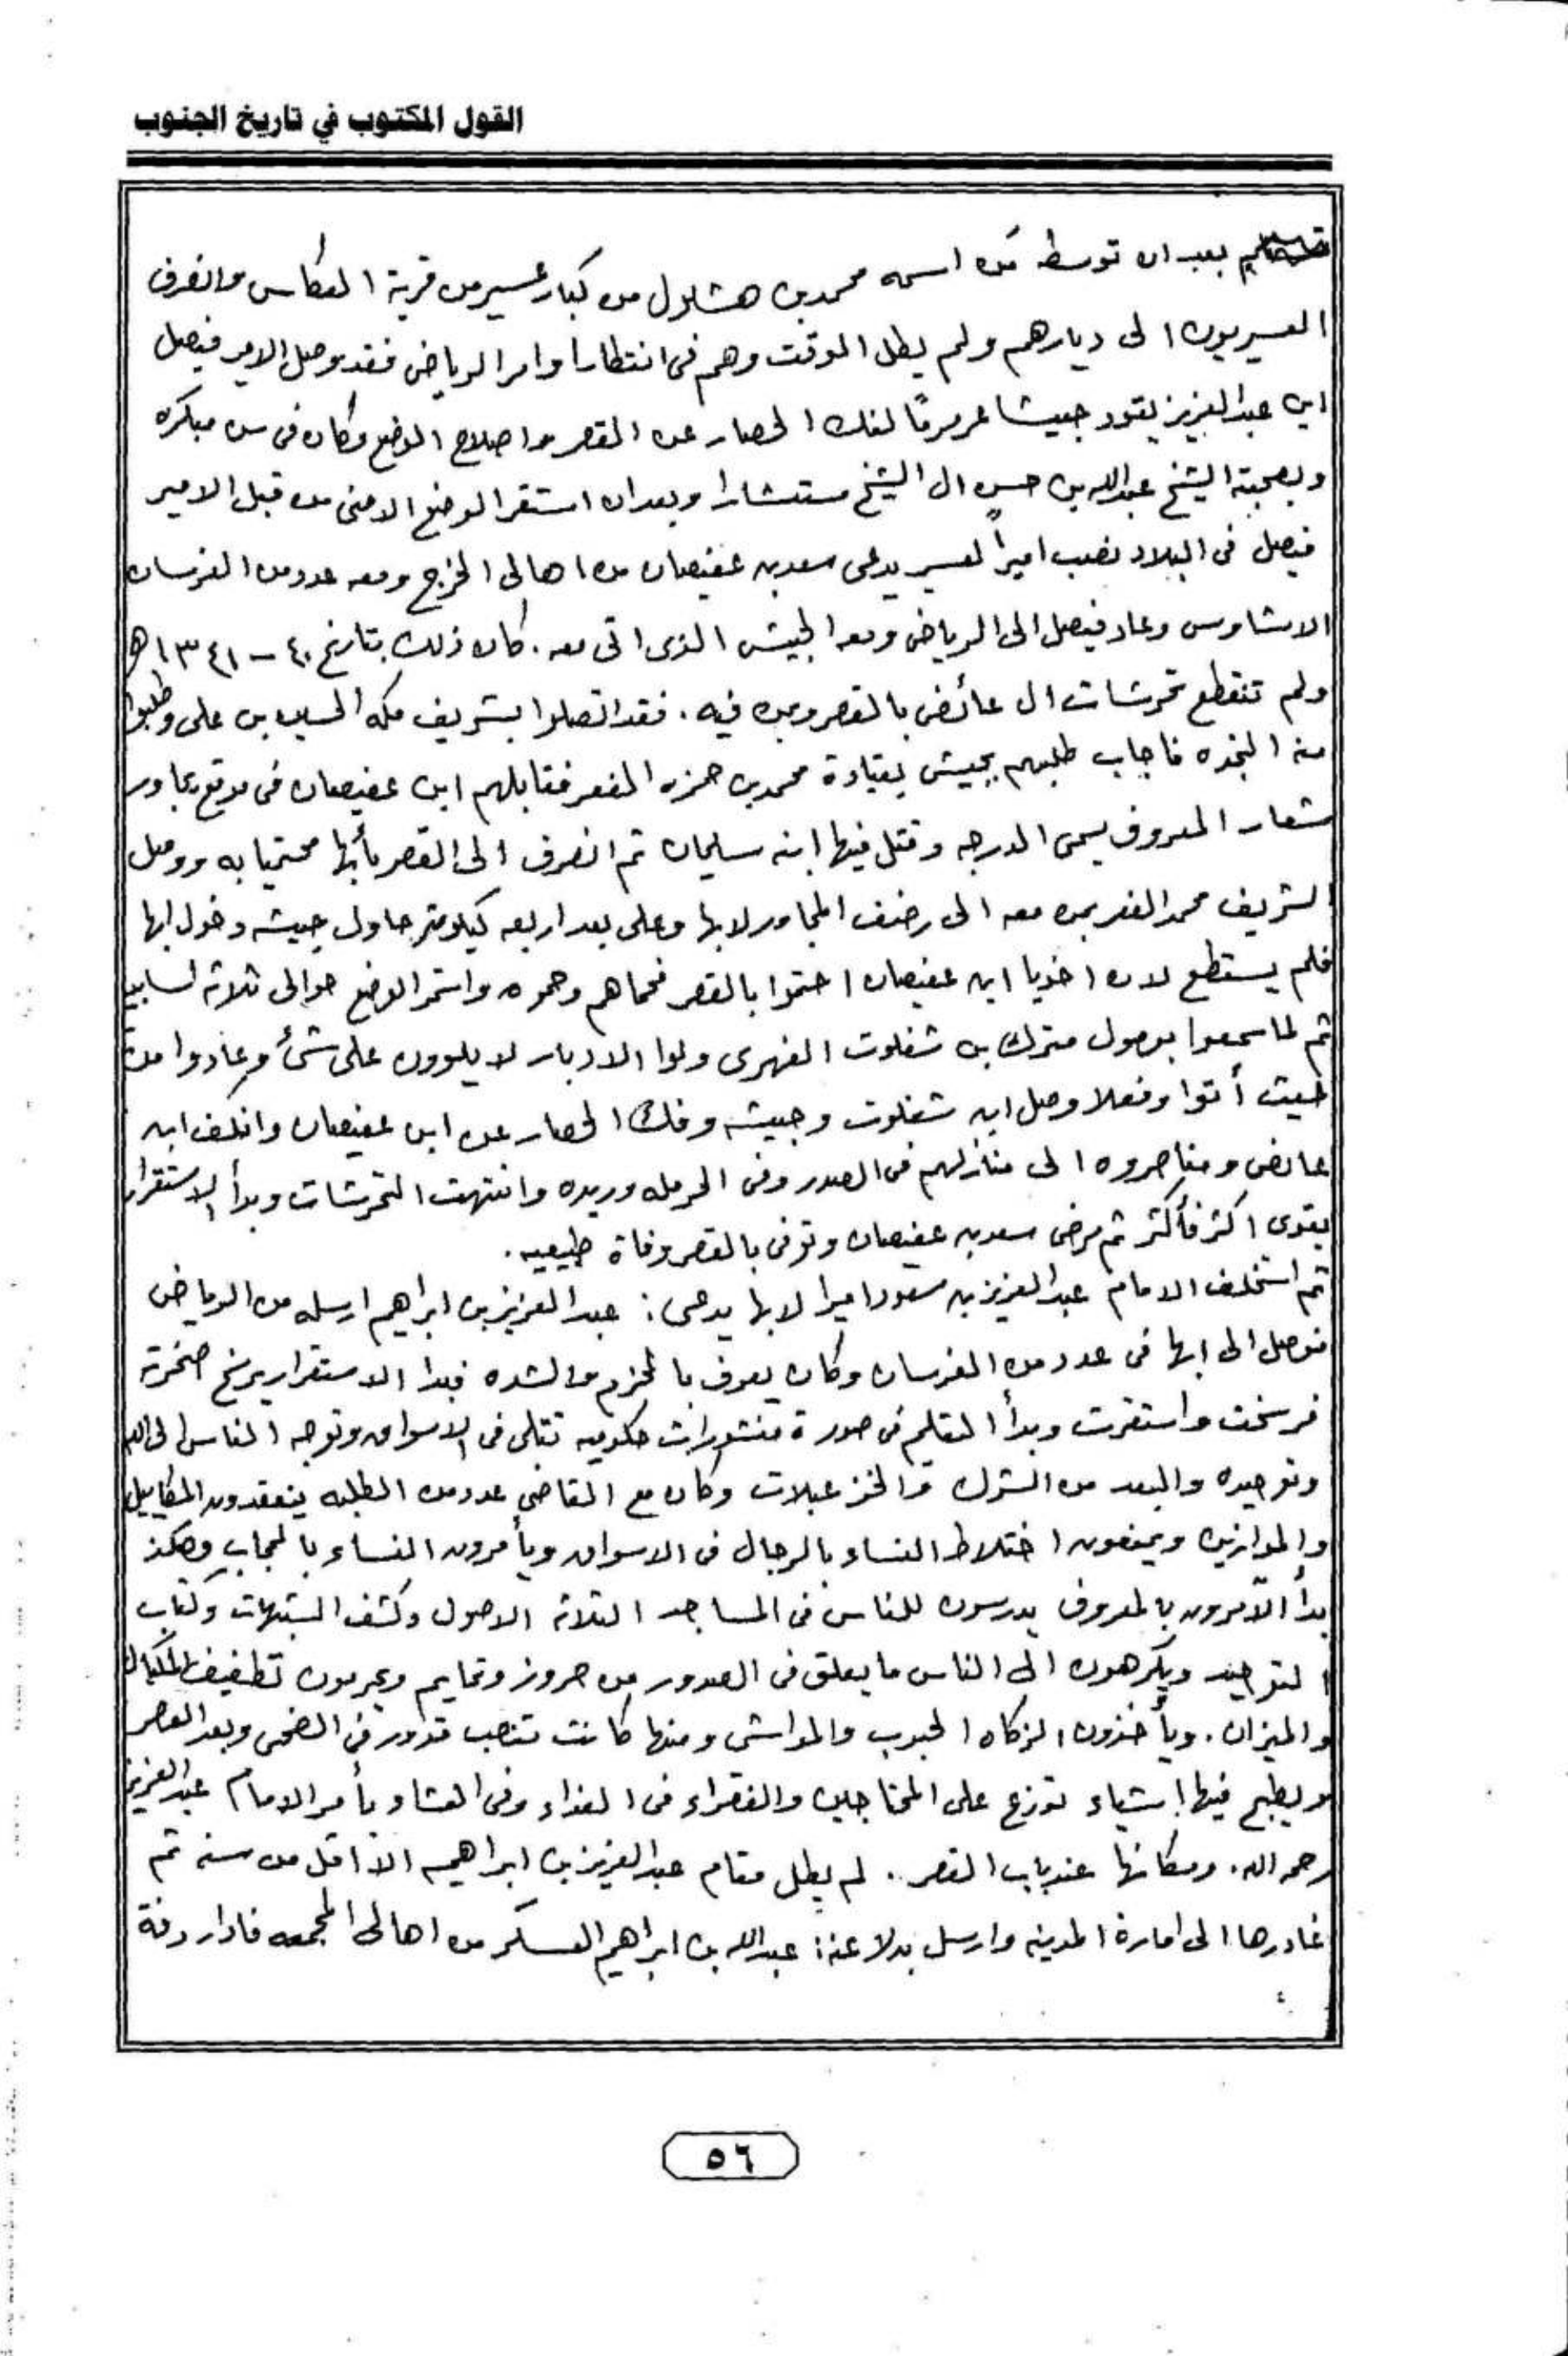 القول المكتوب في تاريخ الجنوب
بعد ان توسط من اسمه محمد بن هشلول من كبار عسير من قرية العكاس وانصرف
العسيريون الى ديارهم ولم يطل الوقت وهم فى انتظار اوامر الرياض فقد وصل الامير فيصل
ابن عبدالعزيز يقود جيشا عرمرمًا لفك الحصار عن القصر واصلاح الوضع وكان فى سن مبكره
وبصحبته الشيخ عبدالله بن حسن ال الشيخ مستشارا وبعد ان استقر الوضع الامنى من قبل الامير
فيصل فى البلاد نصب اميراً لعسير يدعى سعد بن عفيصان من اهالى الخرج ومعه عدد من الفرسان
الاشاوس وعاد فيصل الى الرياض ومعه الجيش الذى اتى معه. كان ذلك بتاريخ ٤٠ - ١٣٤١هـ
ولم تنقطع تحرشات ال عائض بالقصر ومن فيه. فقد اتصلوا بشريف مكه الحسين بن على وطلبوا
منه النجده فاجاب طلبهم بجيش بقيادة محمد بن حمزه الفعر فقابلهم ابن عفيصان فى موقع يجاور
شعار المعروف يسمى الدرجه وقتل فيها ابنه سليمان ثم انصرف الى القصر بأبها محتميا به ووصل
الشريف محمد الفعر بمن معه الى رضف المجاور لابها وعلى بعد اربعه كيلومتر حاول جيشه دخول ابها
فلم يستطع لان اخويا ابن عفيصان احتموا بالقصر فحماهم وحموه واستمر الوضع حوالى ثلاثه اسابيع
ثم لما سمعوا بوصول مترك بن شفلوت الفهرى ولوا الادبار لا يلوون على شئ وعادوا من
حيث أتوا وفعلا وصل ابن شفلوت وجيشه وفك الحصار عن ابن عفيصان وانكف ابن
عائض ومناصروه الى منازلهم فى الصدر وفى الحرمله وريده وانتهت التحرشات وبدأ الاستقرار
يقوى اكثر فأكثر ثم مرض سعد بن عفيصان وتوفى بالقصر وفاة طبيعيه.
ثم استخلف الامام عبدالعزيز بن سعود اميرا لابها يدعى: عبدالعزيز بن ابراهيم ارسله من الرياض
فوصل الى ابها فى عدد من الفرسان وكان يعرف بالحزم والشده فبدا الاستقرار يرسخ صخرته
فرسخت واستقرت وبدأ التعليم فى صورة منشورات حكوميه تتلى فى الاسواق وتوجه الناس الى الله
وتوحيده والبعد من الشرك والخزعبلات وكان مع القاضي عدد من الطلبه يتفقدون المكاييل
والموازين ويمنعون اختلاط النساء بالرجال فى الاسواق ويأمرون النساء بالحجاب وهكذ
بدأ الآمرون بالمعروف يدرسون للناس فى المساجد الثلاثه الاصول وكشف الشبهات وكتاب
التوحيد ويكرهون الى الناس ما يعلق فى الصدور من حروز وتمايم ويحرمون تطفيف المكيال
والميزان. ويأخذون الزكاه الحبوب والمواشى ومنها كانت تنصب قدور فى الضحى وبعد العصر
ويطبخ فيها اشياء توزع على المحتاجين والفقراء فى الغداء وفى العشاء بأمر الامام عبدالعزيز
رحمه الله. ومكانها عند باب القصر. لم يطل مقام عبدالعزيز بن ابراهيم الا اقل من سنه ثم
غادرها الى امارة المدينه وارسل بدلا عنه: عبدالله بن ابراهيم العسكر من اهالى المجمعه فادار دفة
٥٦